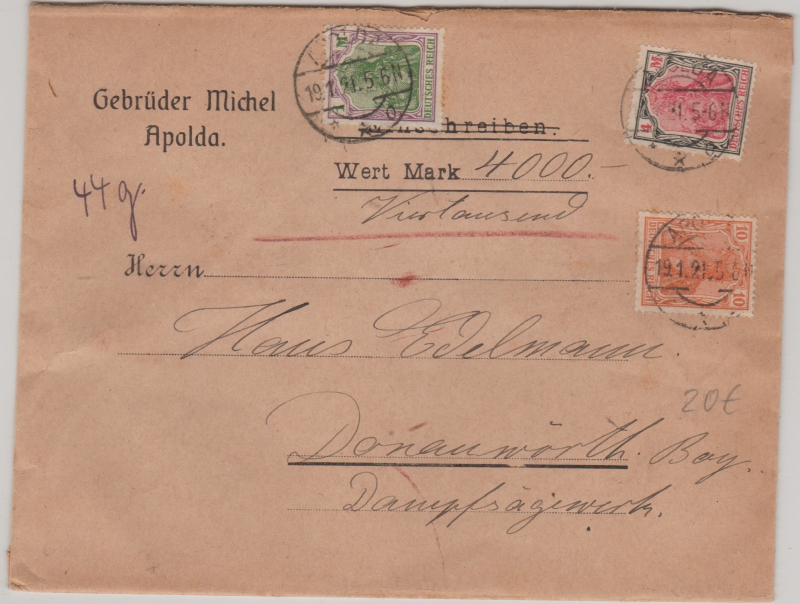 Gebrüder Michel
Apolda.
Einschreiben.
Wert Mark 4000.-
Viertausend
44 g.
Herrn
Hans Edelmann.
Donauwörth. Bay.
Dampfsägewerk.
20€
DEUTSCHES REICH
M
19.1.21.5-6N
DEUTSCHES REICH
M
APOLDA
10
10
19.1.21.5-6N